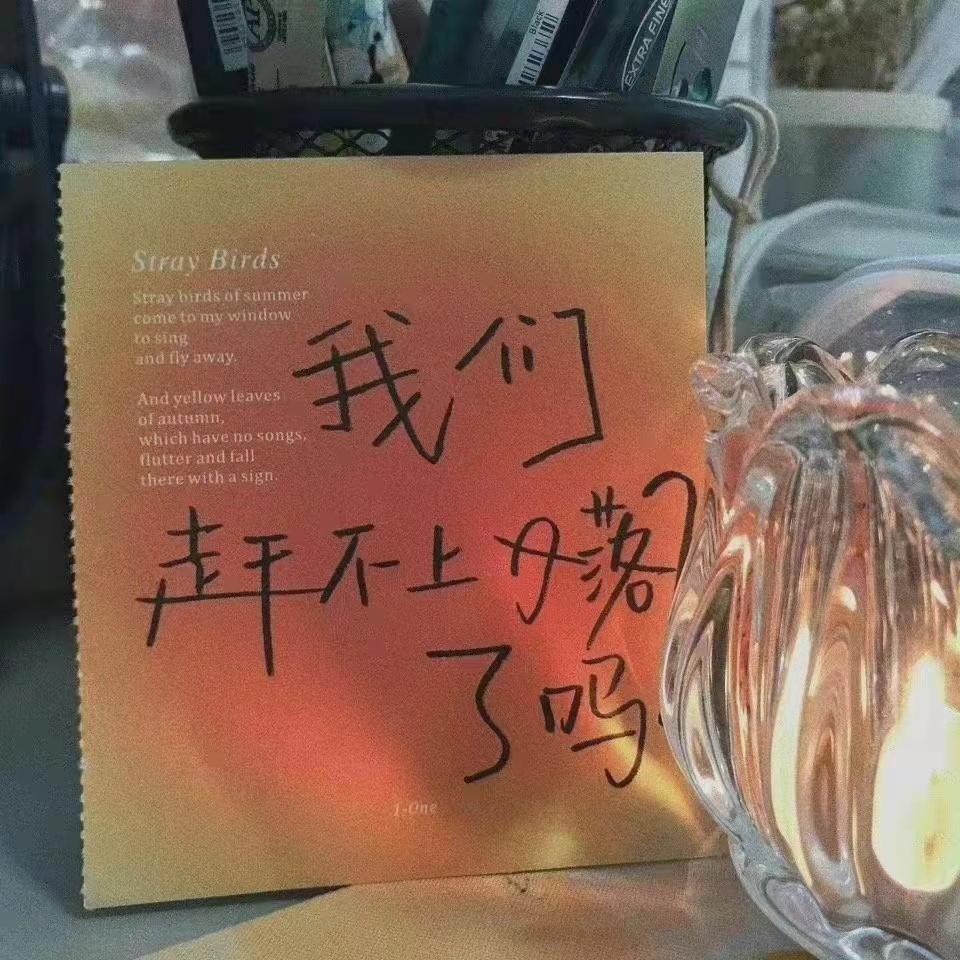 Black
EXTRA FINE
Stray Birds
Stray birds of summer
come to my window
to sing
and fly away.
And yellow leaves
of autumn,
which have no songs,
flutter and fall
there with a sign.
我们
赶不上落
了吗?
J-One